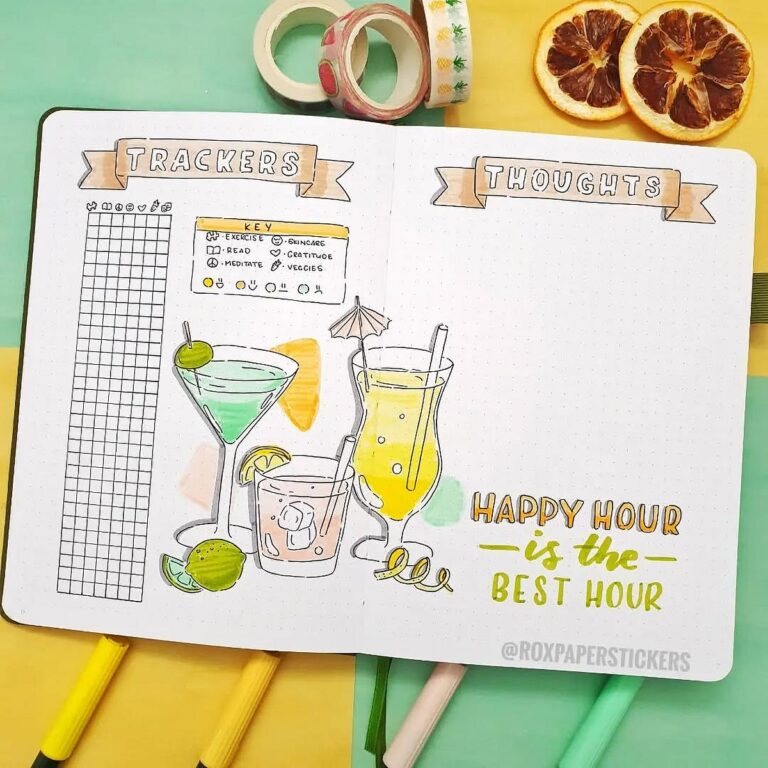 TRACKERS
THOUGHTS
KEY
· EXERCISE · SKINCARE
· READ · GRATITUDE
· MEDITATE · VEGGIES
HAPPY HOUR
— is the —
BEST HOUR
@ROXPAPERSTICKERS